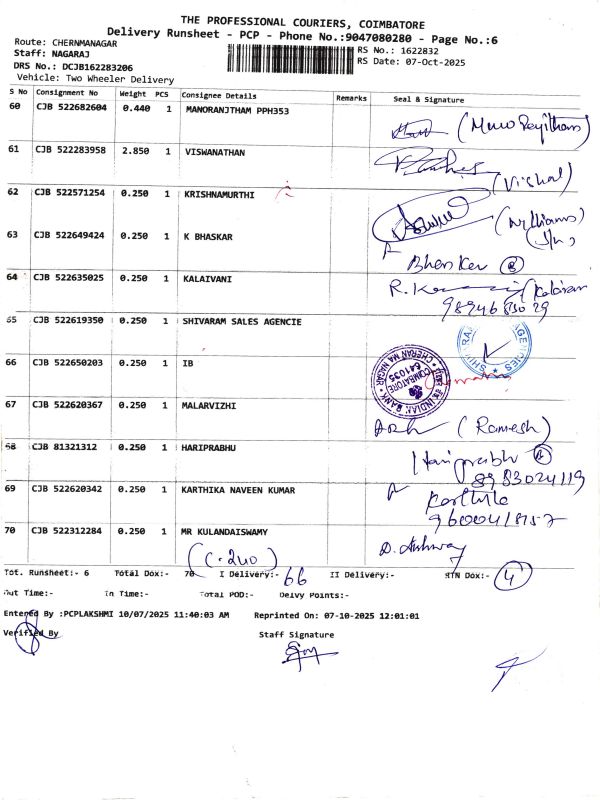 THE PROFESSIONAL COURIERS, COIMBATORE
Delivery Runsheet - PCP - Phone No.:9047080280 - Page No.:6
Route: CHERNMANAGAR
Staff: NAGARAJ
DRS No.: DCJB162283206
Vehicle: Two Wheeler Delivery
RS No.: 1622832
RS Date: 07-Oct-2025
S No Consignment No Weight PCS Consignee Details Remarks Seal & Signature
60 CJB 522682604 0.440 1 MANORANJTHAM PPH353
61 CJB 522283958 2.850 1 VISWANATHAN
(Vishal)
62 CJB 522571254 0.250 1 KRISHNAMURTHI
63 CJB 522649424 0.250 1 K BHASKAR
Bhasker
64 CJB 522635025 0.250 1 KALAIVANI
65 CJB 522619350 0.250 1 SHIVARAM SALES AGENCIE
66 CJB 522650203 0.250 1 IB
INDIAN BANK
CHERAN MA NAGAR
COIMBATORE
641035
67 CJB 522620367 0.250 1 MALARVIZHI
(Ramesh)
68 CJB 81321312 0.250 1 HARIPRABHU
Hariprabhu
8983024119
69 CJB 522620342 0.250 1 KARTHIKA NAVEEN KUMAR
Karthika
70 CJB 522312284 0.250 1 MR KULANDAISWAMY
(C.240)
Tot. Runsheet:- 6 Total Dox:- 70 I Delivery:- 66 II Delivery:- RTN Dox:- 4
Out Time:- In Time:- Total POD:- Delvy Points:-
Entered By :PCPLAKSHMI 10/07/2025 11:40:03 AM Reprinted On: 07-10-2025 12:01:01
Verified By Staff Signature